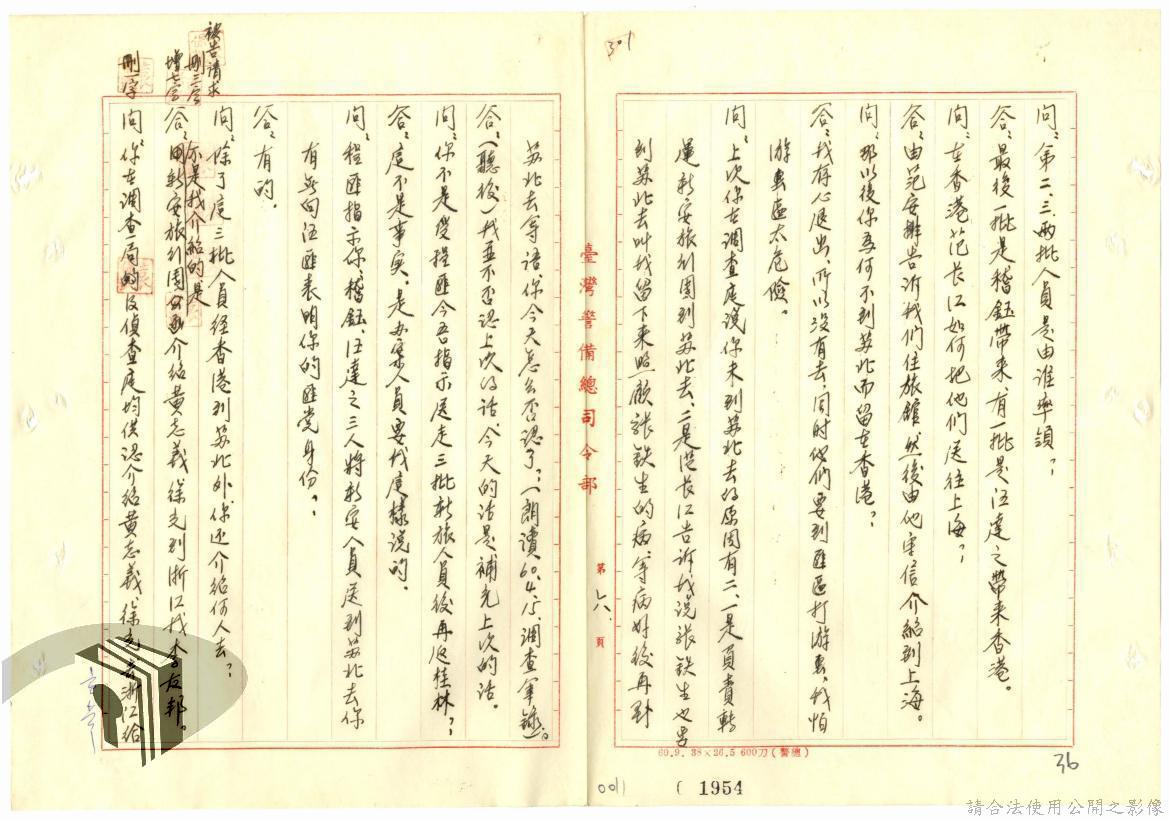 301
問:第二、三、兩批人員是由誰率領?
答:最後一批是稽鈺帶來、有一批是汪達之帶来香港。
問:在香港范長江如何把他們送往上海?
答:由范安排告訴我们住旅館然後由他写信介紹到上海。
問:那以後你為何不到苏北而留在香港?
答:我存心退出,所以没有去,同时他们要到匪區打游击,我怕
游击區太危險。
問:上次你在調查庭說你未到苏北去的原因有二、一是負責轉
運新安旅行團到苏北去、二是范長江告訴我說張鉄生也要
到苏北去叫我留下来照顧張鉄生的病、等病好後再到
臺灣警備總司令部
第 六 頁
苏北去等语、你今天怎么否認了?(朗讀60.4.15.調查筆錄)。
答:(聽後)我並不否認上次的话、今天的话是補充上次的话。
問:你不是受程匪今吾指示送走三批新旅人員後再返桂林?
答:这不是事实。是办案人員要我这樣说的。
問:程匪指示你、稽鈺、汪達之三人將新安人員送到苏北去你
有無向汪匪表明你的匪党身份?
答:有的。
問:除了这三批人員经香港到苏北外、你还介绍何人去?
被告請求
刪三字
增七字
不是我介紹的是
答:用新安旅行團 介绍黄志義徐光到浙江找李友邦。
刪一字
問:你在調查局的及偵查庭均供認介绍黄志義徐光去浙江给
60.9. 38×26.5 600刀(警總)
36
0011
( 1954
請合法使用公開之影像